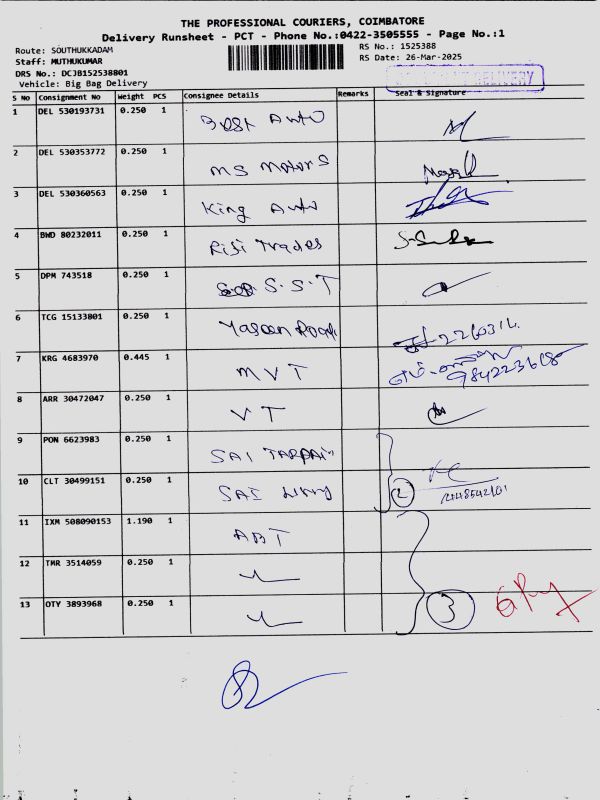 THE PROFESSIONAL COURIERS, COIMBATORE
Delivery Runsheet - PCT - Phone No.:0422-3505555 - Page No.:1
Route: SOUTHUKKADAM
RS No.: 1525388
Staff: MUTHUKUMAR
RS Date: 26-Mar-2025
DRS No.: DCJB152538801
Vehicle: Big Bag Delivery
DELIVERY
S No Consignment No Weight PCS Consignee Details Remarks Seal & Signature
1 DEL 530193731 0.250 1 Best Auto
2 DEL 530353772 0.250 1 MS Motors
3 DEL 530360563 0.250 1 King Auto
4 BWD 80232011 0.250 1 Risi Trades
5 DPM 743518 0.250 1 S.S.T
6 TCG 15133801 0.250 1 Yaseen
7 KRG 4683970 0.445 1 MVT
8 ARR 30472047 0.250 1 VT
9 PON 6623983 0.250 1 SAI
10 CLT 30499151 0.250 1 SAI 2
11 IXM 508090153 1.190 1 ABT
12 TMR 3514059 0.250 1
13 OTY 3893968 0.250 1 3